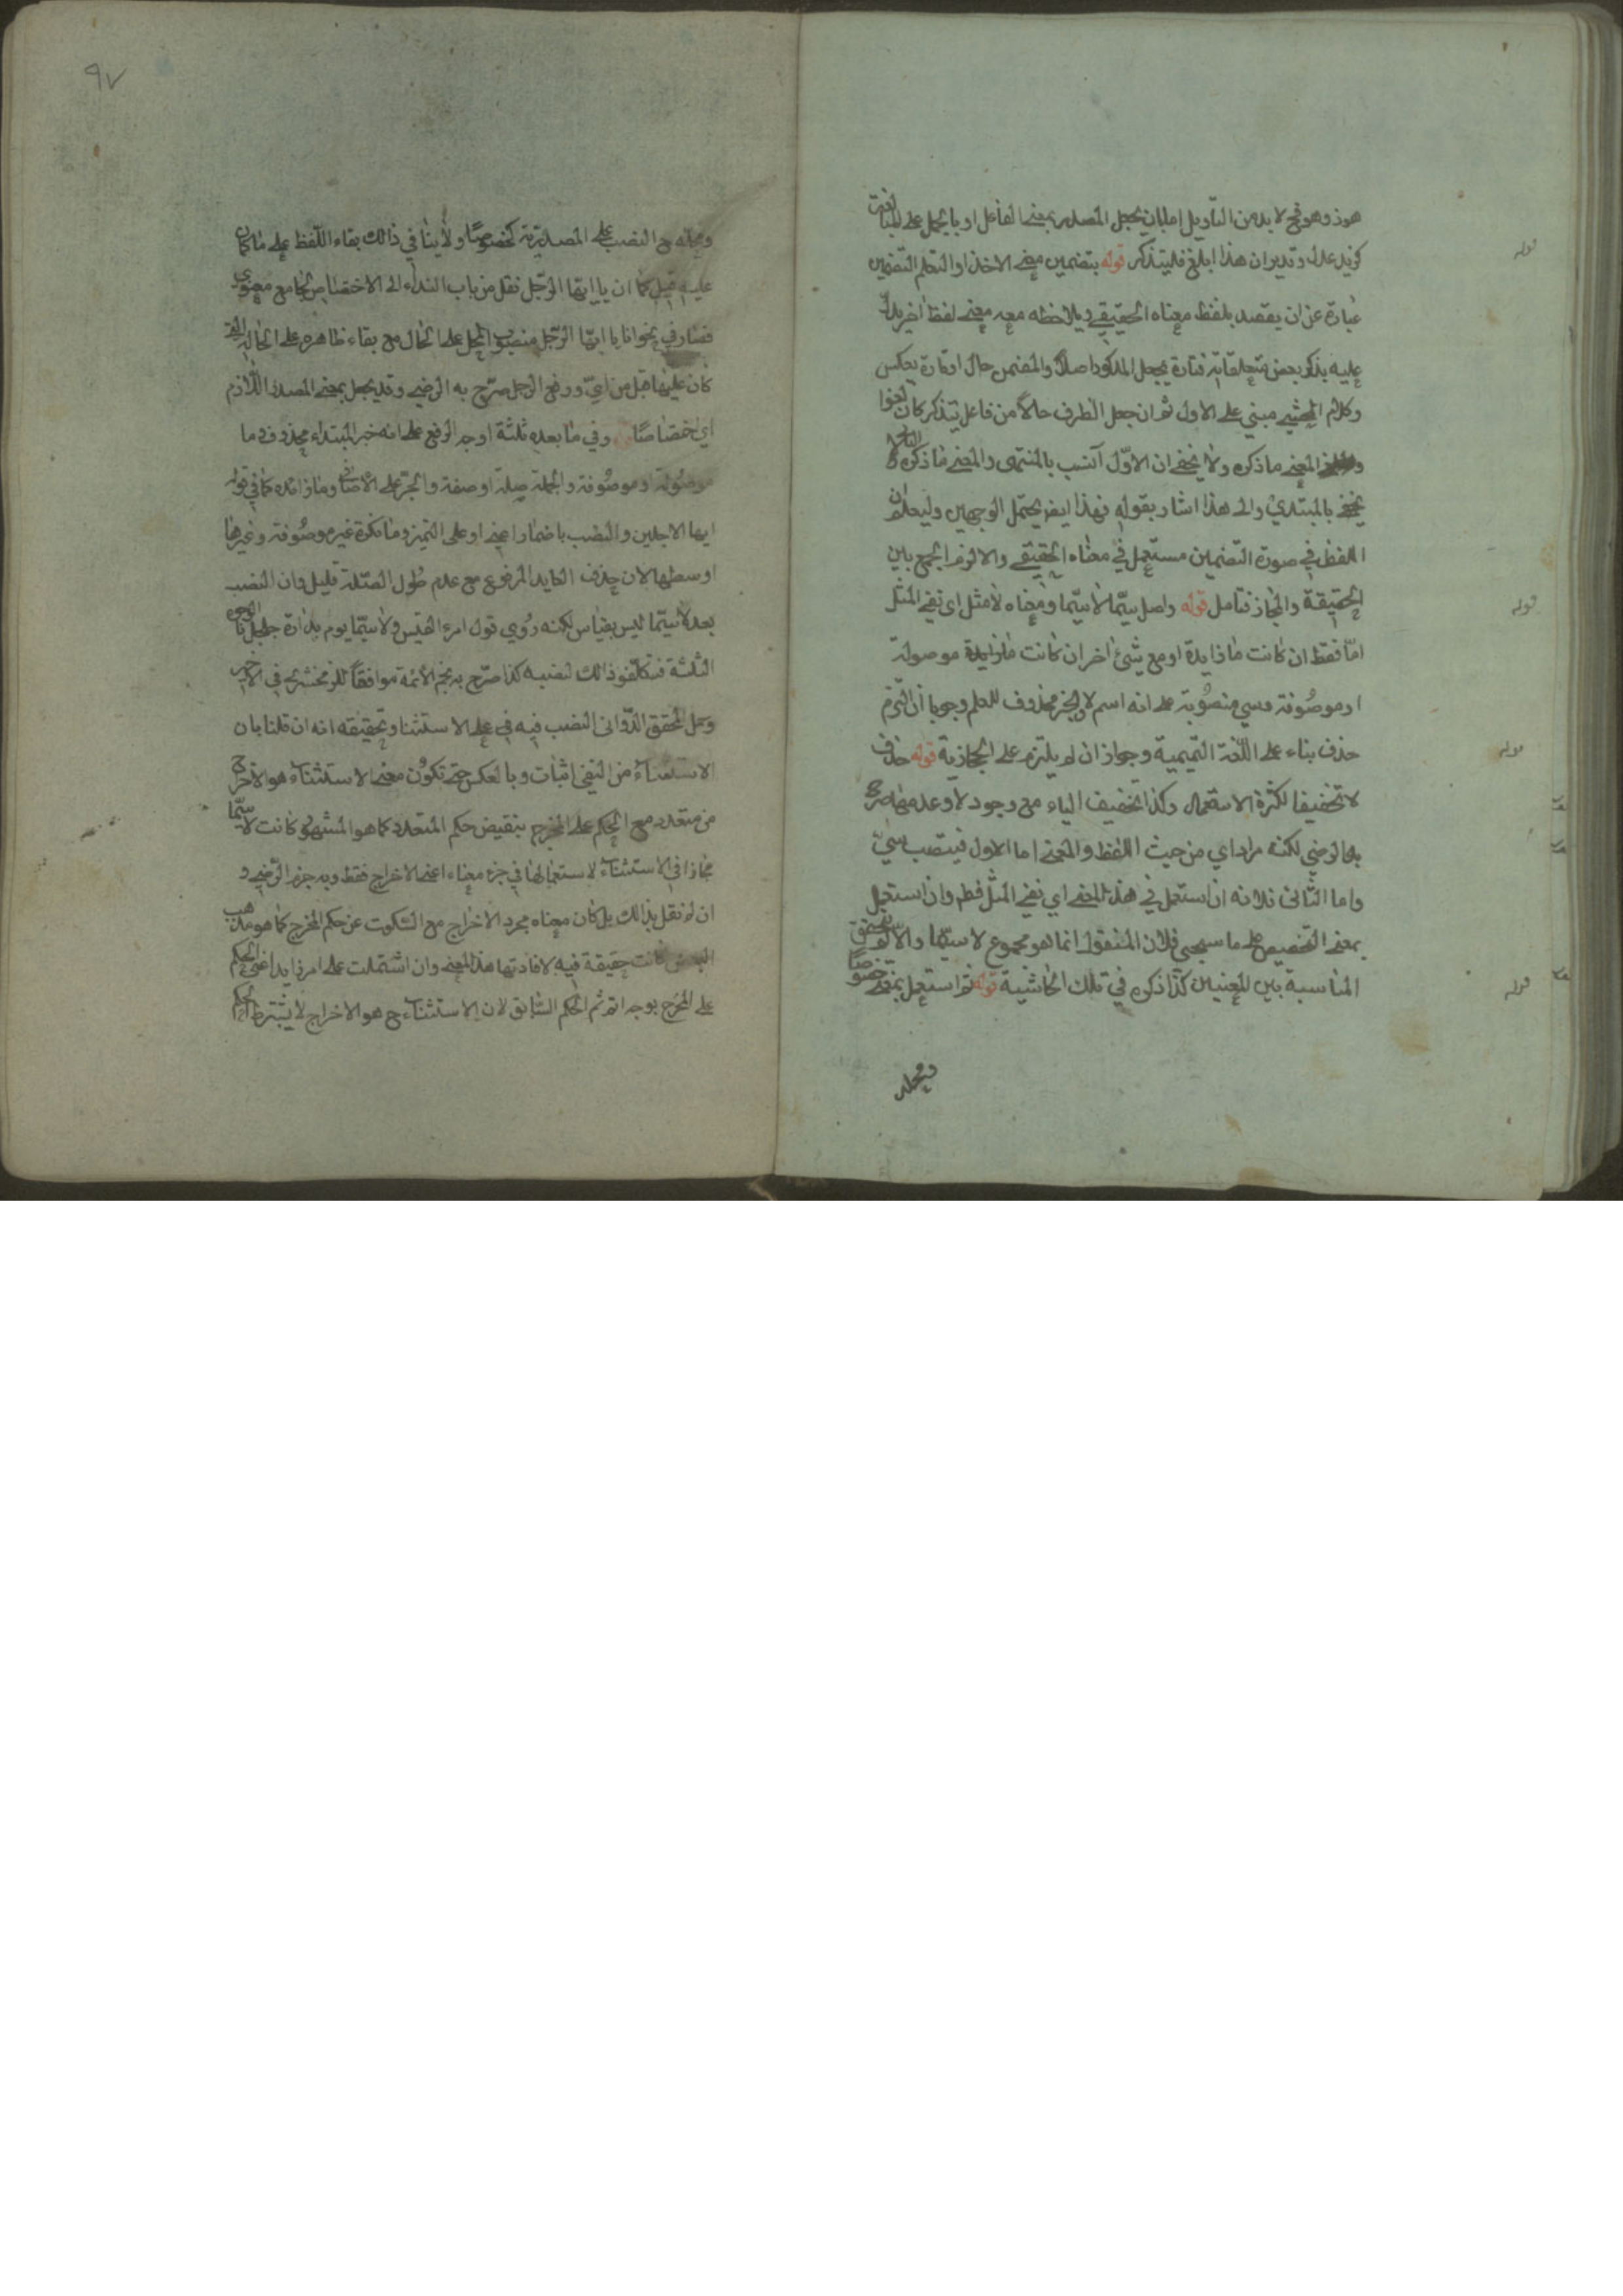 هوذ وهو فح لا بد من التأويل اما بان يجعل المصدر بمعنى الفاعل او بالحمل على المبالغة
كزيد عدل وقد مر ان هذا ابلغ فليتذكر قوله بتضمين معنى الاخذ او التعلم التضمين
عبارة عن ان يقصد بلفظ معناه الحقيقي ويلاحظ معه معنى لفظ اخر يدل
عليه بذكر بعض متعلقاته فتارة يجعل المذكور اصلا والمضمن حال او تارة يعكس
وكلام المحشي مبني على الاول ثم ان جعل الظرف حالا من فاعل يتذكر كان لغوا
المعنى ما ذكره ولا يخفى ان الاول انسب بالمنتهى والمعنى ما ذكره
بالمبتدي والى هذا اشار بقوله فهذا ايض يحتمل الوجهين وليعلم ان
اللفظ في صورة التضمين مستعمل في معناه الحقيقي والا لزم الجمع بين
الحقيقة والمجاز فتامل قوله واصل سيّما لا سيّما ومعناه لا مثل اى نفي المثل
امّا فقط ان كانت ما زايدة او مع شئ اخر ان كانت ما زايدة موصولة
او موصوفة وسي منصوبة على انه اسم لا والخبر محذوف للعلم وجوبا ان التزم
حذف بناء على اللغة التميمية وجواز ان لم يلتزم على الحجازية قوله حذف
لا تخفيفا لكثرة الاستعمال وكذا تخفيف الياء مع وجود لا وعدمها صرح
به الرضي لكنه مراد اي من حيث اللفظ والمعنى اما الاول فينتصب سيّ
واما الثاني فلانه ان استعمل في هذ المعنى اي نفي المثل فظ وان استعمل
بمعنى التخصيص على ما سيجئ فلان المنقول انما هو مجموع لا سيّما والا لم يتحقق
المناسبة بين المعنيين كذا ذكره في تلك الحاشية قوله ثم استعمل بمعنى خصوصًا
ومحله
ومحله ح النصب على المصدرية كخصوصًا ولا ينافي ذالك بقاء اللفظ على ما كان
عليه قبل كما ان يا ايها الرّجل نقل من باب النداء الى الاختصاص لجامع معنوي
فصار في نحو انا يا ايها الرّجل منصوب المحل على الحال مع بقاء ظاهره على الحالة التي
كان عليها قبل من ضم ايّ ورفع الرجل صرّح به الرضي وقد يجعل بمعنى المصدر اللّازم
اي اختصاصًا قوله وفي ما بعده ثلثة اوجه الرفع على انه خبر المبتداء محذوف وما
موصولة او موصوفة والجملة صلة او صفة والجرّ على الاضافة وما زائدة كما في قوله
ايما الاجلين والنصب باضمار اعني او على التميز وما نكرة غير موصوفة وغيرها
اوسطها لان حذف العايد المرفوع مع عدم طول الصّلة قليل وان النصب
بعد لا سيّما ليس بقياس لكنه روي قول امرء القيس ولا سيّما يوم بدارة جلجل بالوجوه
الثلثة فتكلّفو ذالك لنصبه كذا صرّح به نجم الأئمة موافقًا للزمخشري في الاخير
وحمل المحقق الدّواني النصب فيه في على الاستثناء وتحقيقه انه ان قلنا بان
الاستثناء من النفي اثبات وبالعكس حتى تكون معنى الاستثناء هو الاخراج
من متعدد مع الحكم على المخرج بنقيض حكم المتعدد كما هو المشهور كانت لا سيّما
مجازا في الاستثناء لاستعمالها في جزء معناه اعني الاخراج فقط وبه جزم الرّضي و
ان لم نقل بذالك بل كان معناه مجرد الاخراج مع السّكوت عن حكم المخرج كما هو مذهب
البعض كانت حقيقة فيه لافادتها هذا المعنى وان اشتملت على امر زايد اعني الحكم
على المخرج بوجه اتم ثم الحكم السّابق لان الاستثناء ح هو الاخراج لا يشترط الحكم
٩٧
قوله
قوله
قوله
قوله